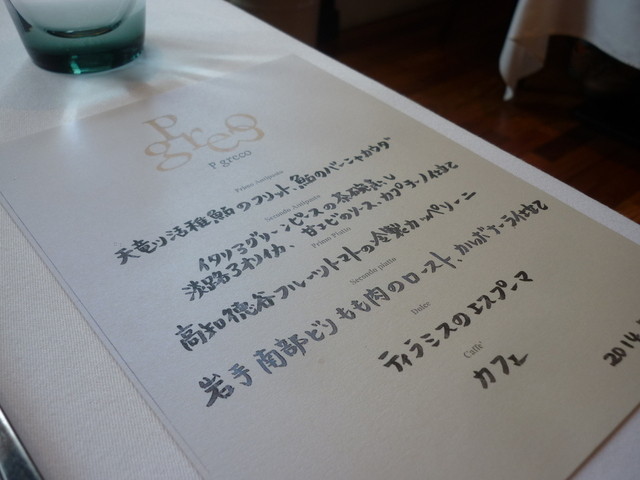 P
greco
P greco
Primo Antipasto
天竜川活稚鮎のフリット、鮎のバーニャカウダ
Secondo Antipasto
イタリアグリーンピースの茶碗蒸し
淡路アオリイカ、甘エビのソース、カプチーノ仕立て
Primo Piatto
高知徳谷フルーツトマトの冷製カッペリーニ
Secondo piatto
岩手南部どりもも肉のロースト、カルボナーラ仕立て
Dolce
ティラミスのエスプーマ
Caffe'
カフェ
2014.